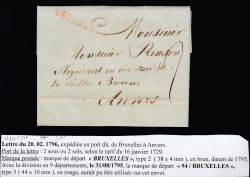 BRUXELLES
Monsieur
Monsieur
Negociant
Anvers
Lettre du 20. 02. 1796, expédiée en port dû, de Bruxelles à Anvers.
Port de la lettre : 2 sous ou 2 sols, selon le tarif du 16 janvier 1729.
Marque postale : marque de départ « BRUXELLES », type 2 ( 38 x 4 mm ), en brun, datant de 1795.
Avec la division en 9 départements, le 31/08/1795, la marque de départ « 94 / BRUXELLES »,
type 5 ( 44 x 10 mm ), en rouge, aurait du être utilisée sur cet envoi.